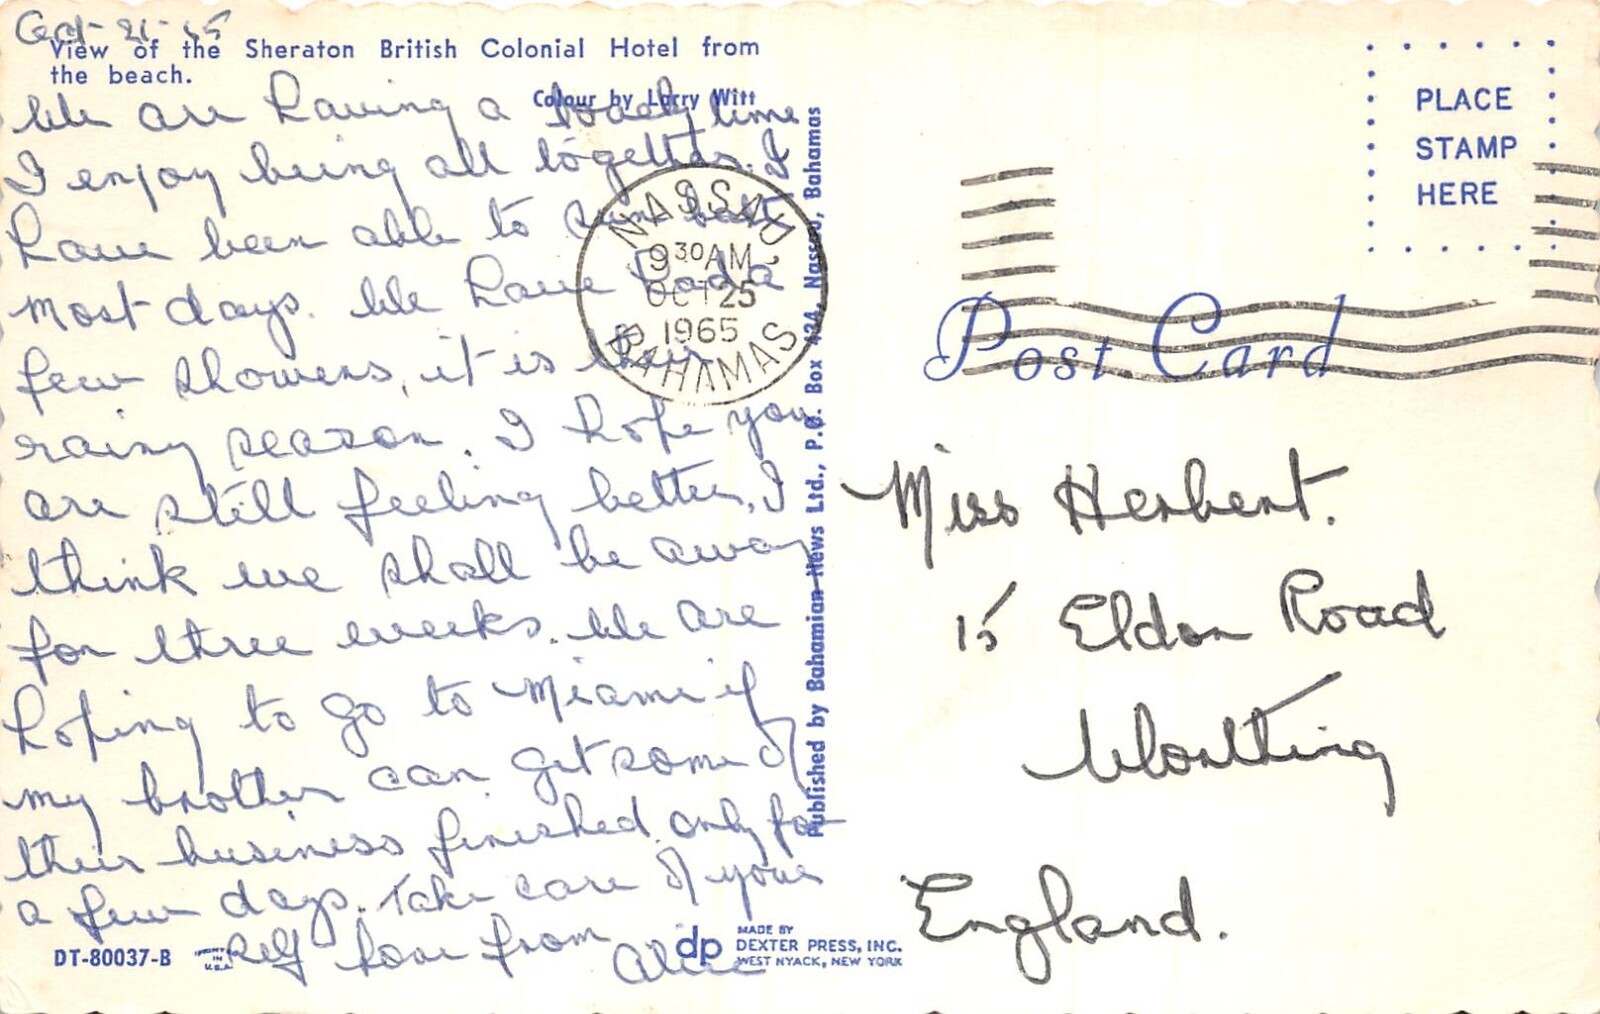 View of the Sheraton British Colonial Hotel from
the beach.
Colour by Larry Witt
We are having a lovely time
I enjoy being all together. I
have been able to sun bathe
most days. We have had a
few showers, it is their
rainy season. I hope you
are still feeling better. I
think we shall be away
for three weeks. We are
hoping to go to Miami if
my brother can get some of
their business finished only for
a few days. Take care of your
self love from
Alice
DT-80037-B
PRINTED
IN
U.S.A.
Published by Bahamian News Ltd., P.O. Box 434, Nassau, Bahamas
NASSAU,
9 30 AM
OCT 25
1965
BAHAMAS
dp
MADE BY
DEXTER PRESS, INC.
WEST NYACK, NEW YORK
PLACE
STAMP
HERE
Post Card
Miss Herbert.
15 Eldon Road
Worthing
England.